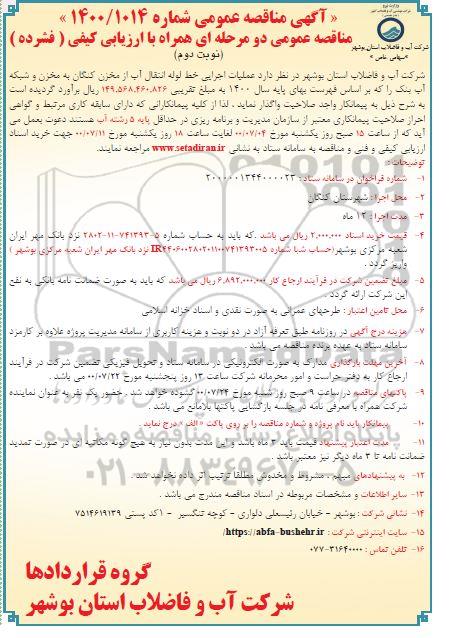 « آگهی مناقصه عمومی شماره ۱۴۰۰/۱۰۱۴ »
مناقصه عمومی دو مرحله ای همراه با ارزیابی کیفی ( فشرده )
(نوبت دوم)
شرکت آب و فاضلاب استان بوشهر
(سهامی خاص)
شرکت آب و فاضلاب استان بوشهر در نظر دارد عملیات اجرایی خط لوله انتقال آب از مخزن کنگان به مخزن و شبکه
آب بنک را که بر اساس فهرست بهای پایه سال ۱۴۰۰ به مبلغ تقریبی ۱۴۹.۵۶۸.۴۶۰.۸۲۶ ریال برآورد گردیده است
به شرح ذیل به پیمانکار واجد صلاحیت واگذار نماید ، لذا از کلیه پیمانکارانی که دارای سابقه کاری مرتبط و گواهی
احراز صلاحیت پیمانکاری معتبر از سازمان مدیریت و برنامه ریزی در حداقل پایه ۵ رشته آب هستند دعوت بعمل می
آید که از ساعت ۱۵ صبح روز یکشنبه مورخ ۰۰/۰۷/۰۴ لغایت ساعت ۱۸ روز یکشنبه مورخ ۰۰/۰۷/۱۱ جهت خرید اسناد
ارزیابی کیفی و فنی و مناقصه به سامانه ستاد به نشانی www.setadiran.ir مراجعه نمایند.
توضیحات:
۱- شماره فراخوان در سامانه ستاد : ۲۰۰۰۰۰۱۳۴۴۰۰۰۰۲۳
۲- محل اجرا: شهرستان کنگان
۳- مدت اجرا: ۱۲ ماه
۴- قیمت خرید اسناد ۲,۰۰۰,۰۰۰ ریال می باشد .که باید به حساب شماره ۵-۷۴۱۳۹۳-۱۱-۲۸۰۲ نزد بانک مهر ایران
شعبه مرکزی بوشهر(حساب شبا شماره IR۴۴۰۶۰۰۲۸۰۲۰۱۱۰۰۷۴۱۳۹۳۰۰۵ نزد بانک مهر ایران شعبه مرکزی بوشهر )
واریز گردد .
۵- مبلغ تضمین شرکت در فرآیند ارجاع کار ۶,۸۹۲,۰۰۰,۰۰۰ ریال می باشد که باید به صورت ضمانت نامه بانکی به نفع
این شرکت ارائه گردد .
۶- محل تامین اعتبار : طرحهای عمرانی به صورت نقدی و اسناد خزانه اسلامی
۷- هزینه درج آگهی در روزنامه طبق تعرفه آزاد در دو نوبت و هزینه کاربری از سامانه مدیریت پروژه علاوه بر کارمزد
سامانه ستاد به عهده برنده مناقصه می باشد.
۸- آخرین مهلت بارگذاری مدارک به صورت الکترونیکی در سامانه ستاد و تحویل فیزیکی تضمین شرکت در فرآیند
ارجاع کار به دفتر حراست و امور محرمانه شرکت ساعت ۱۳ روز پنجشنبه مورخ ۰۰/۰۷/۲۲ می باشد .
۹- پاکتهای مناقصه در ساعت ۹ صبح روز شنبه مورخ ۰۰/۰۷/۲۴ گشوده خواهد شد . حضور یک نفر به عنوان نماینده
شرکت همراه با معرفی نامه در جلسه بازگشایی پاکتها بلامانع می باشد .
۱۰- پیمانکار باید نام پروژه و شماره مناقصه را بر روی پاکت « الف » درج نماید .
۱۱- مدت اعتبار پیشنهاد قیمت باید ۳ ماه باشد و این مدت بدون نیاز به هیچ گونه مکاتبه ای در صورت تمدید
ضمانت نامه تا ۳ ماه دیگر نیز معتبر باشد .
۱۲- به پیشنهادهای مبهم ، مشروط و مخدوش مطلقا ترتیب اثر داده نخواهد شد .
۱۳- سایر اطلاعات و مشخصات مربوطه در اسناد مناقصه مندرج می باشد .
۱۴- نشانی شرکت : بوشهر - خیابان رئیسعلی دلواری - کوچه تنگسیر - ۱کد پستی ۷۵۱۴۶۱۹۱۳۹
۱۵- سایت اینترنتی شرکت : https://abfa-bushehr.ir/
۱۶- تلفن تماس : ۳۱۶۴۰۰۰۰-۰۷۷
گروه قراردادها
شرکت آب و فاضلاب استان بوشهر